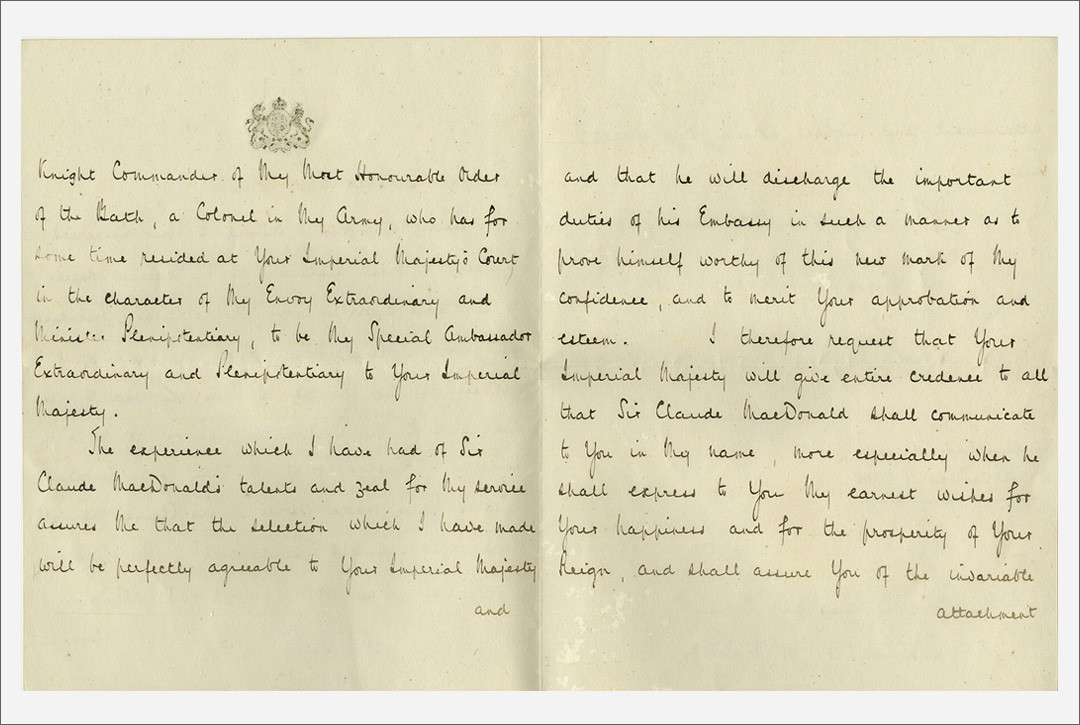 Knight Commander of My Most Honourable Order
of the Bath, a Colonel in My Army, who has for
some time resided at Your Imperial Majesty's Court
in the character of My Envoy Extraordinary and
Minister Plenipotentiary, to be My Special Ambassador
Extraordinary and Plenipotentiary to Your Imperial
Majesty.
The experience which I have had of Sir
Claude MacDonald's talents and zeal for My service
assures Me that the selection which I have made
will be perfectly agreeable to Your Imperial Majesty
and
and that he will discharge the important
duties of his Embassy in such a manner as to
prove himself worthy of this new mark of My
confidence, and to merit Your approbation and
esteem. I therefore request that Your
Imperial Majesty will give entire credence to all
that Sir Claude MacDonald shall communicate
to You in My name, more especially when he
shall express to You My earnest wishes for
Your happiness and for the prosperity of Your
Reign, and shall assure You of the invariable
attachment